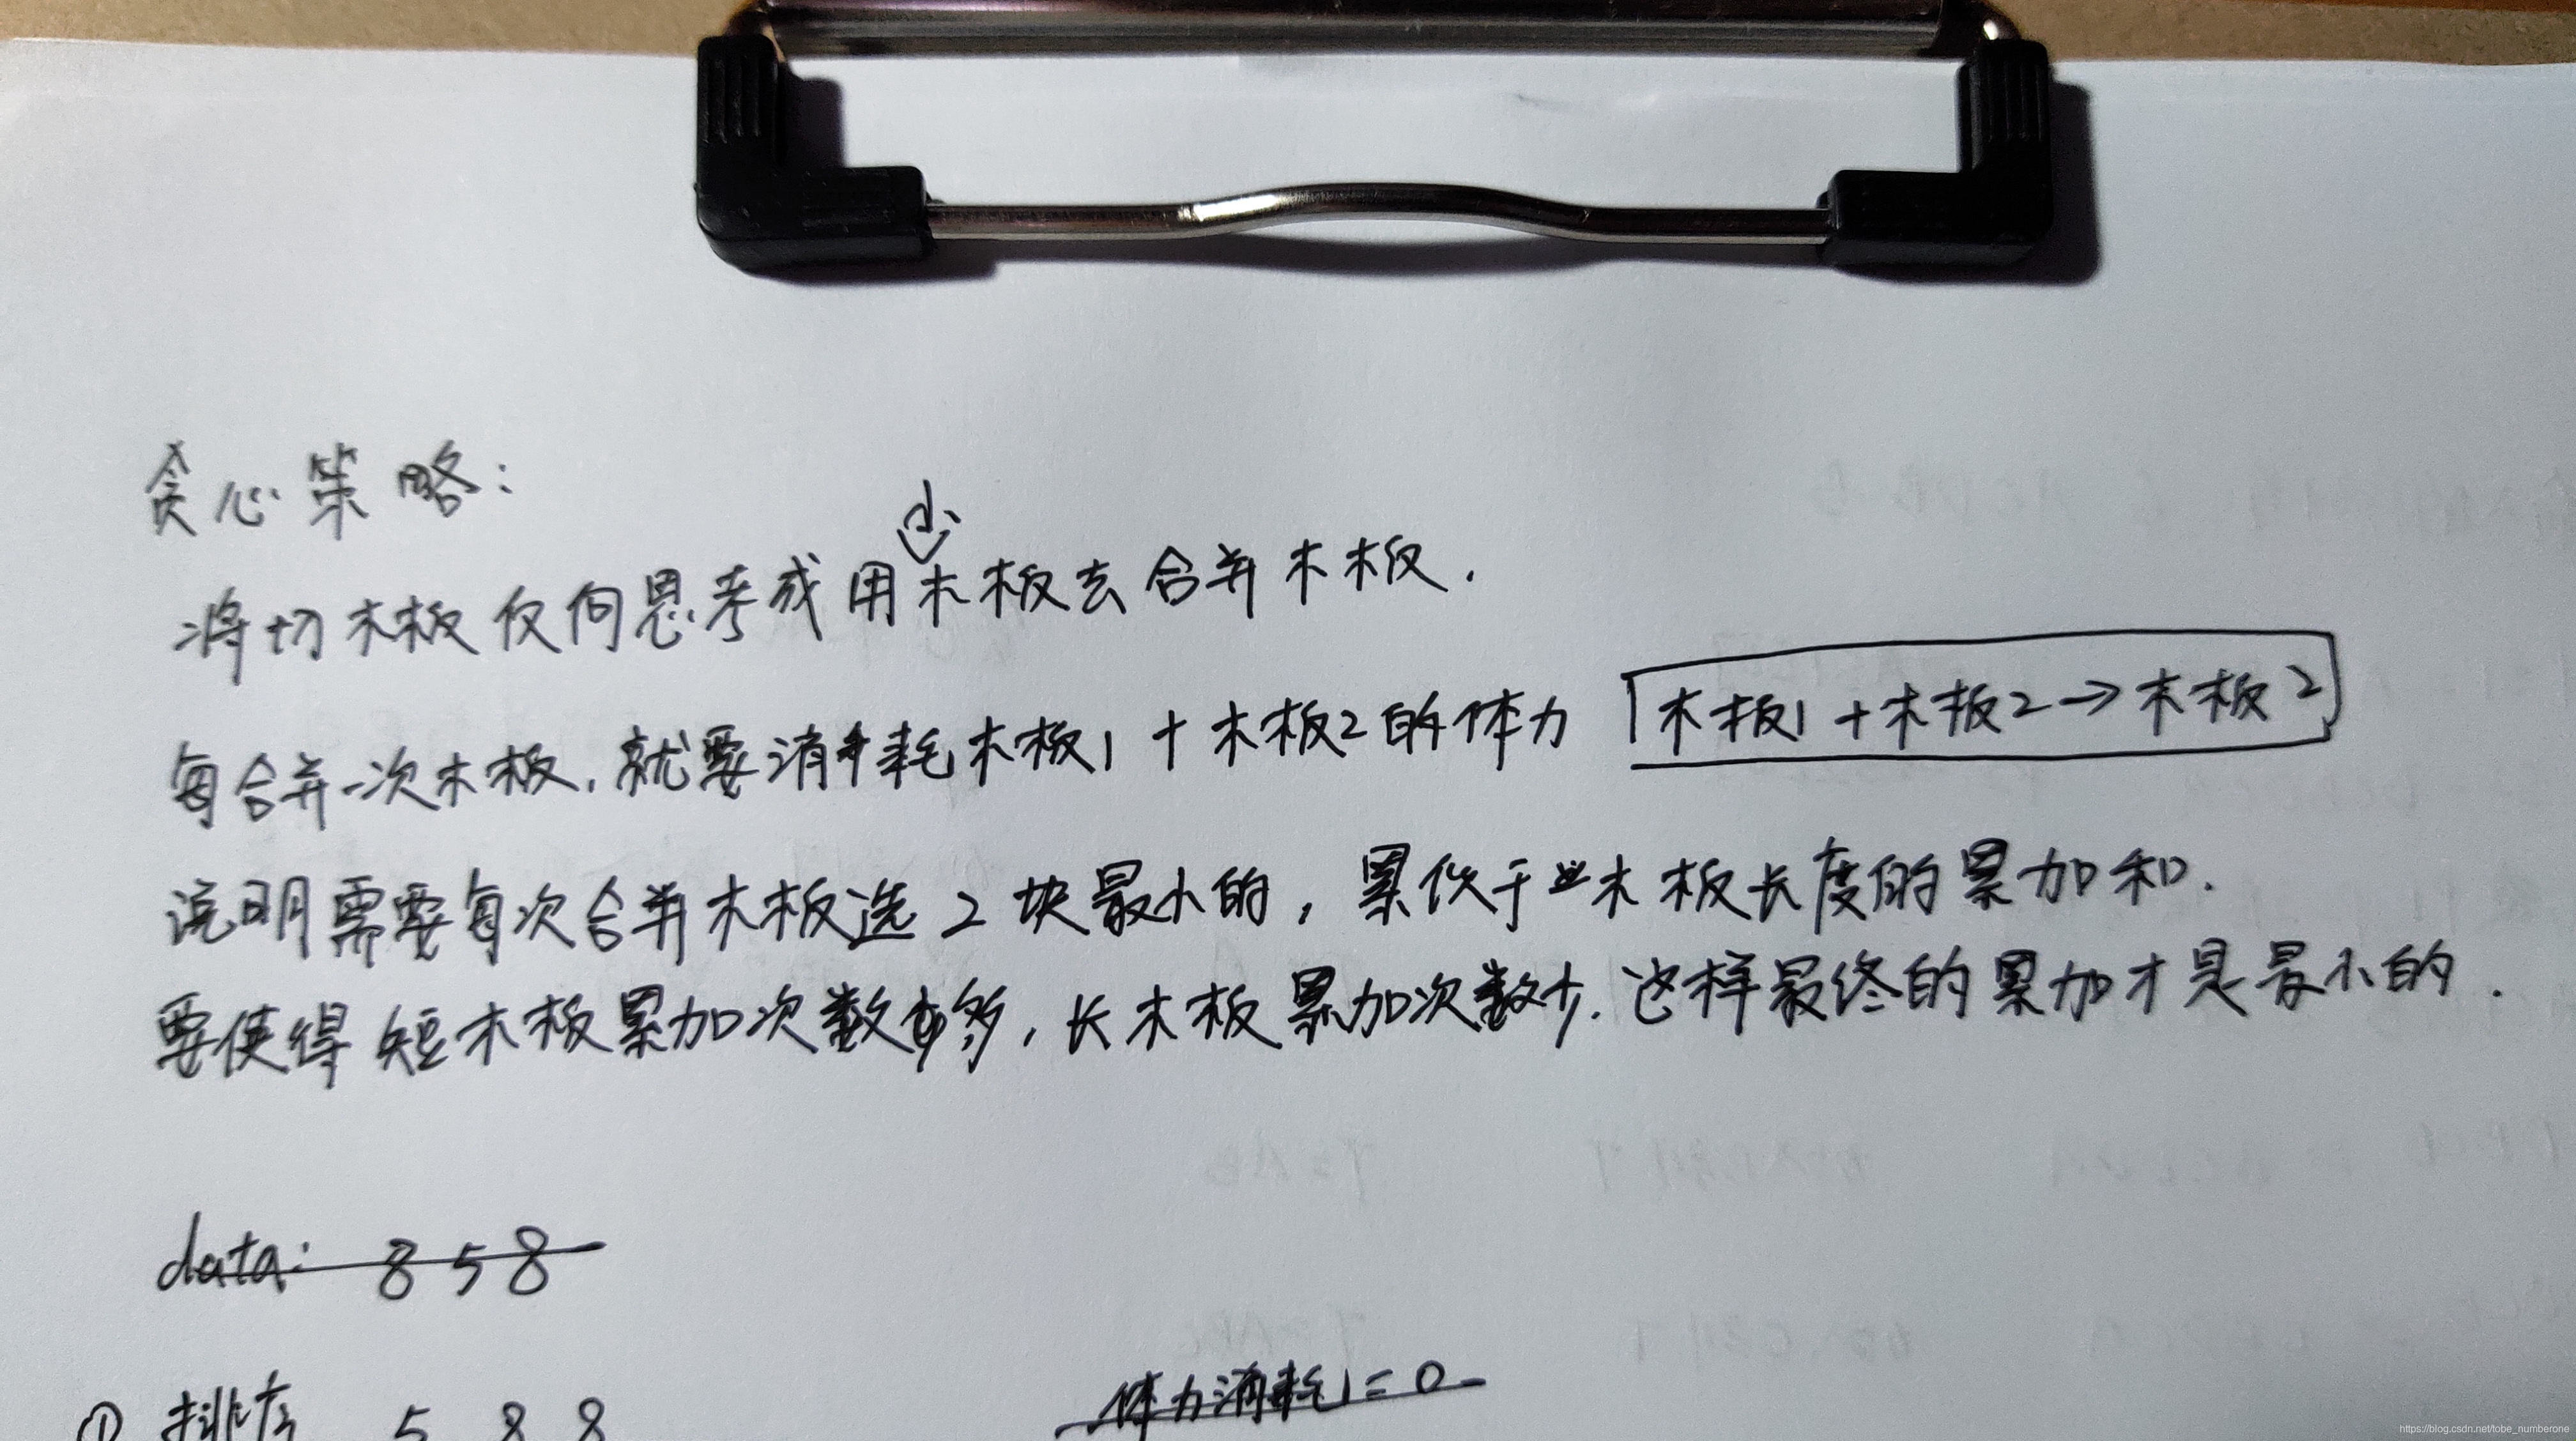 贪心策略：
将切木板仅向思考成用小木板去合并木板.
每合并一次木板，就要消耗木板1 + 木板2的体力 木板1 + 木板2 → 木板2
说明需要每次合并木板选2块最小的，累似于木板长度的累加和.
要使得短木板累加次数多，长木板累加次数少.这样最终的累加才是最小的.
data: 8 5 8
① 排序 5 8 8 体力消耗1 = 0
https://blog.csdn.net/tobe_numberone